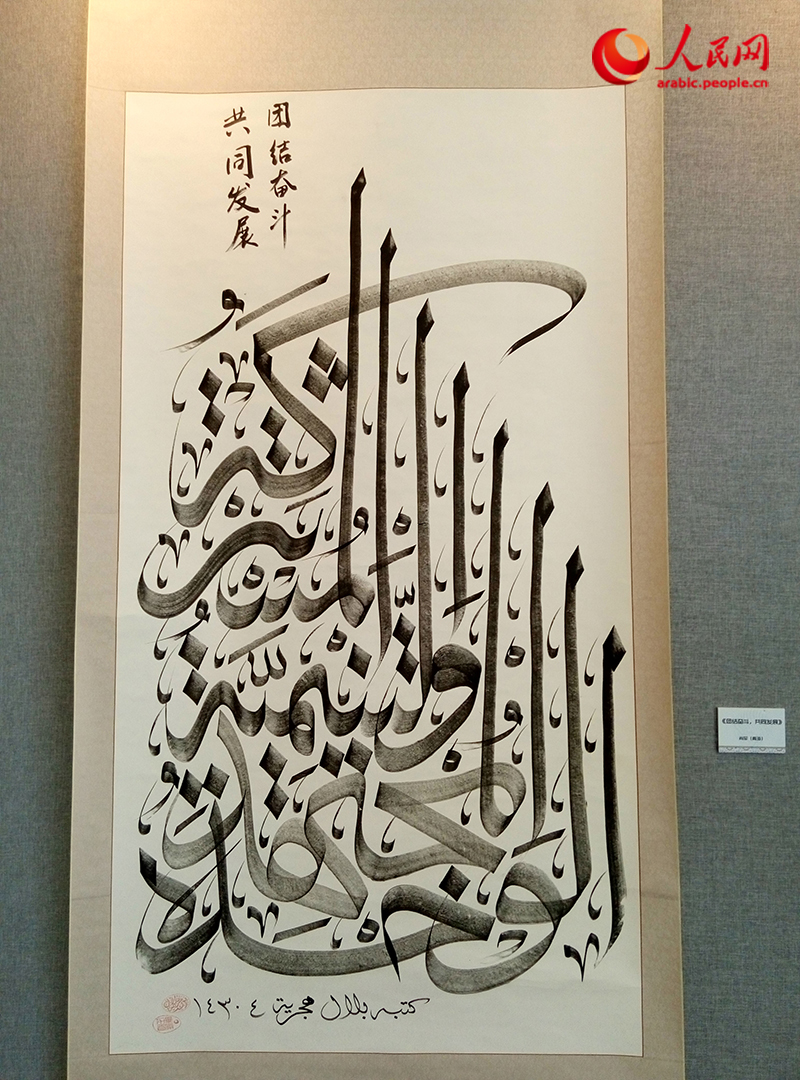 人民网
arabic.people.cn
团结奋斗
共同发展
الوَحْدَة
المجتهدة
والتّنميّة
المشتركة
كتبه بلال هجرية ٤ ١٤٣٠
《团结奋斗，共同发展》